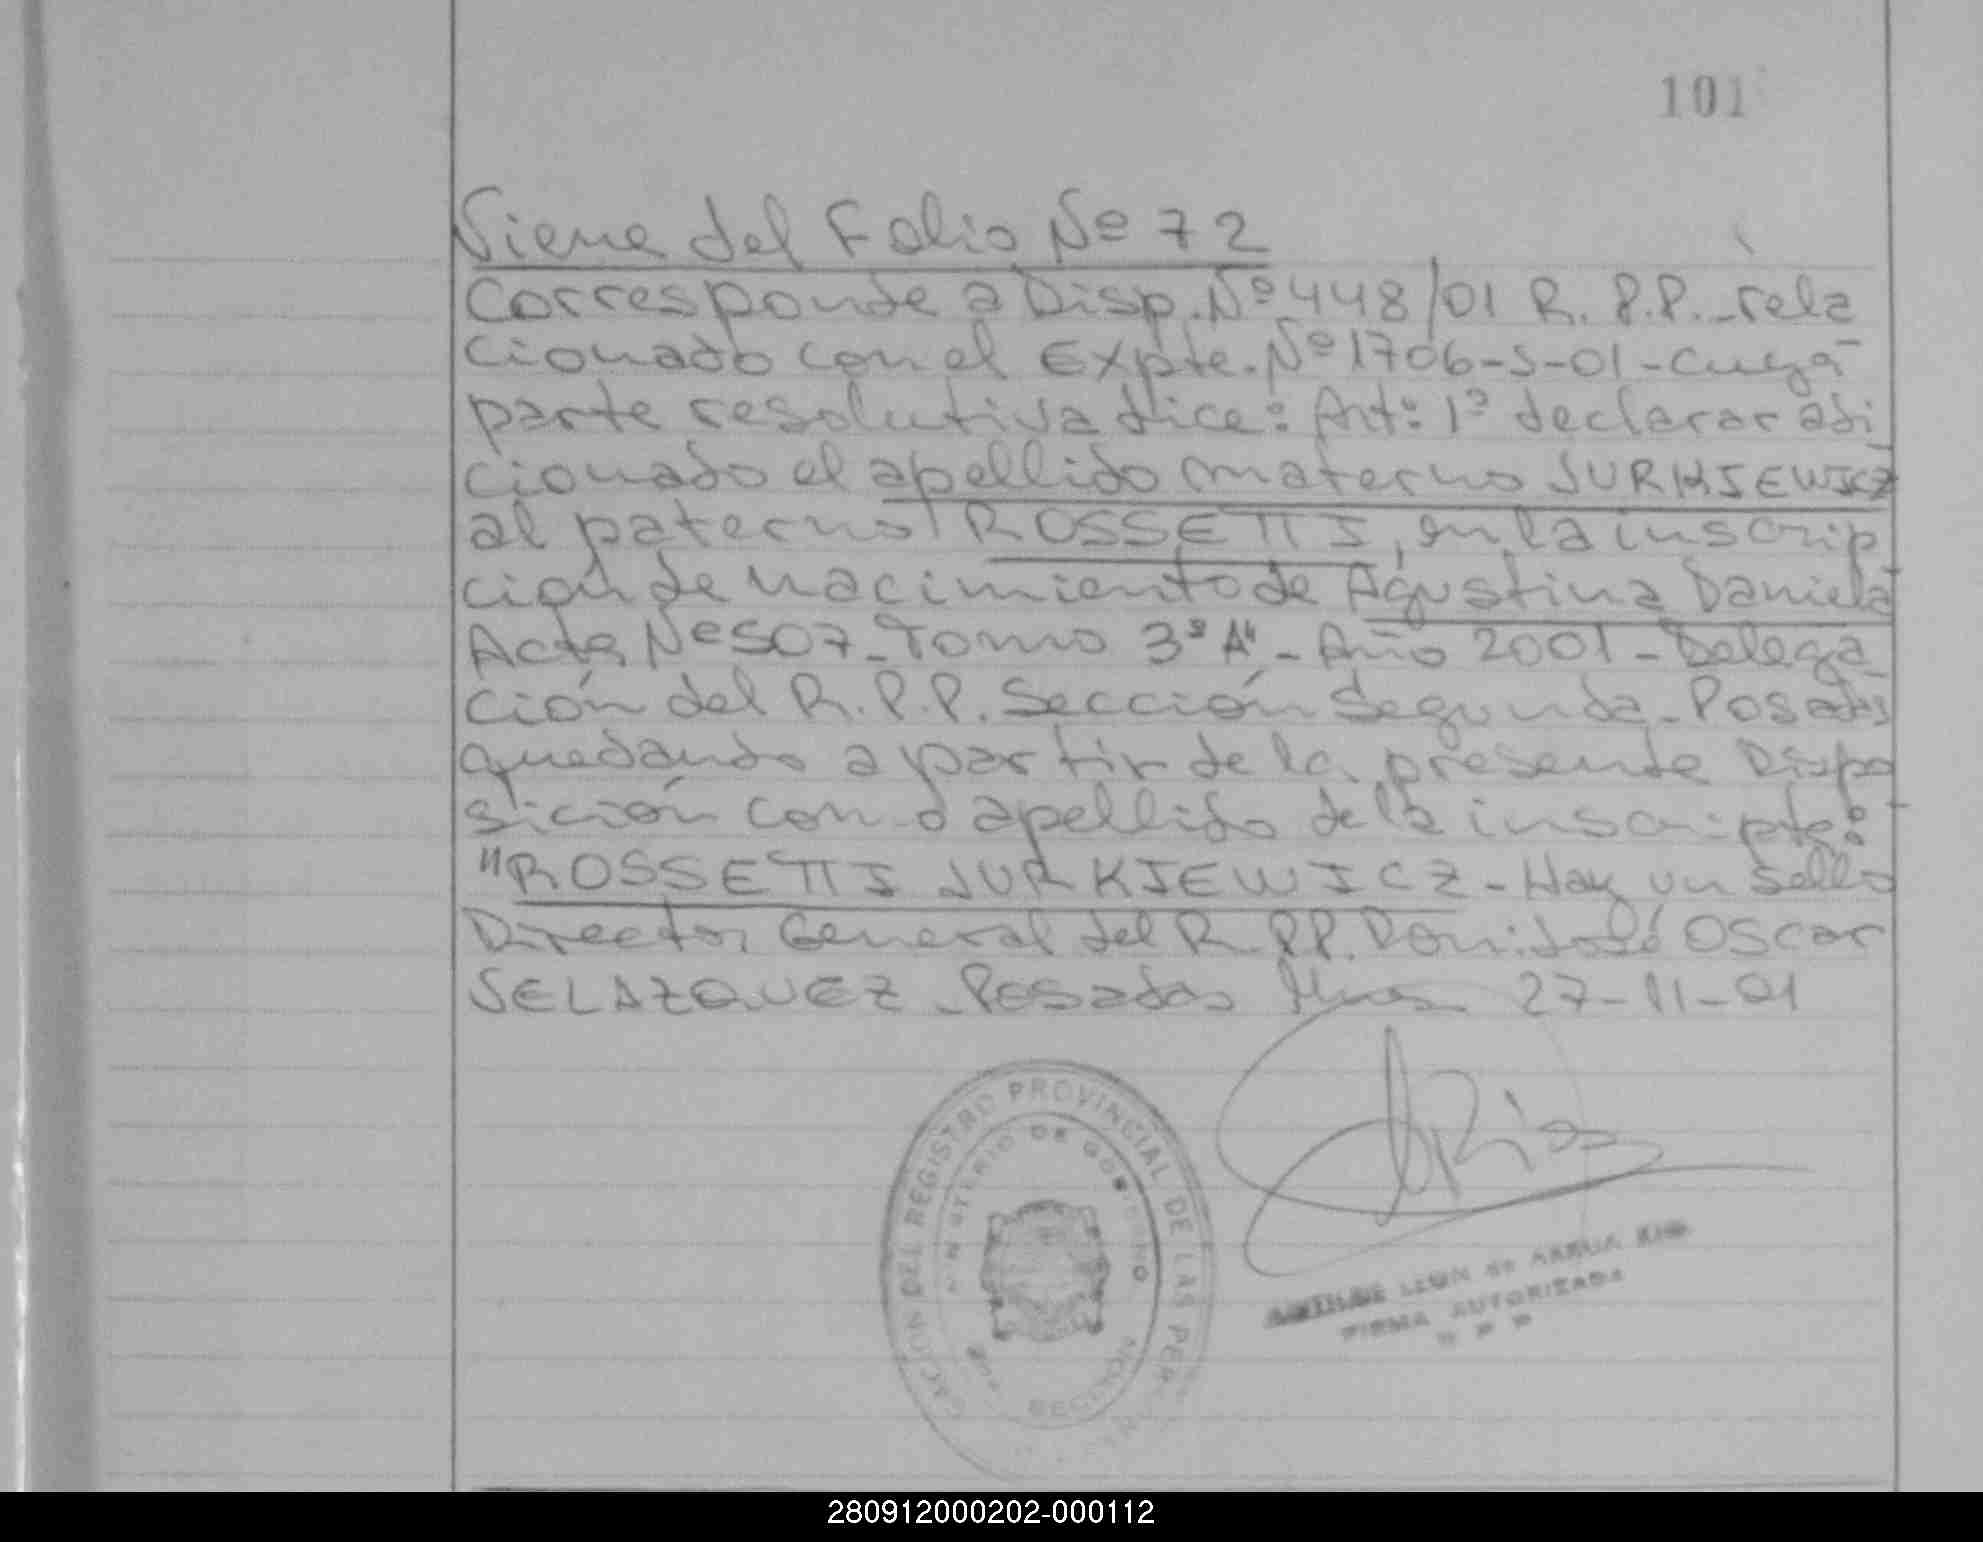 101
Viene del Folio Nº 72
Corresponde a Disp. Nº 448/01 R. P.P. - rela
cionado con el Expte. Nº 1706-S-01 - cuya
parte resolutiva dice: Art: 1º declarar adi
cionado el apellido materno JURKIEWICZ
al paterno ROSSETTI, en la inscrip
ción de nacimiento de Agustina Daniela
Acta Nº 507 - Tomo 3º A" - Año 2001 - Delega
ción del R.P.P. Sección Segunda - Posadas
quedando a partir de la presente Dispo
sición con el apellido de la inscripta:
"ROSSETTI JURKIEWICZ - Hay un sello
Director General del R.PP. Don: José OSCar
SELAZQUEZ - Posadas Mnes 27-11-01
DEL REGISTRO PROVINCIAL DE LAS PER
MINISTERIO DE GOBIERNO
LEON de ARRUA
FIRMA AUTORIZADA
R P P
280912000202-000112